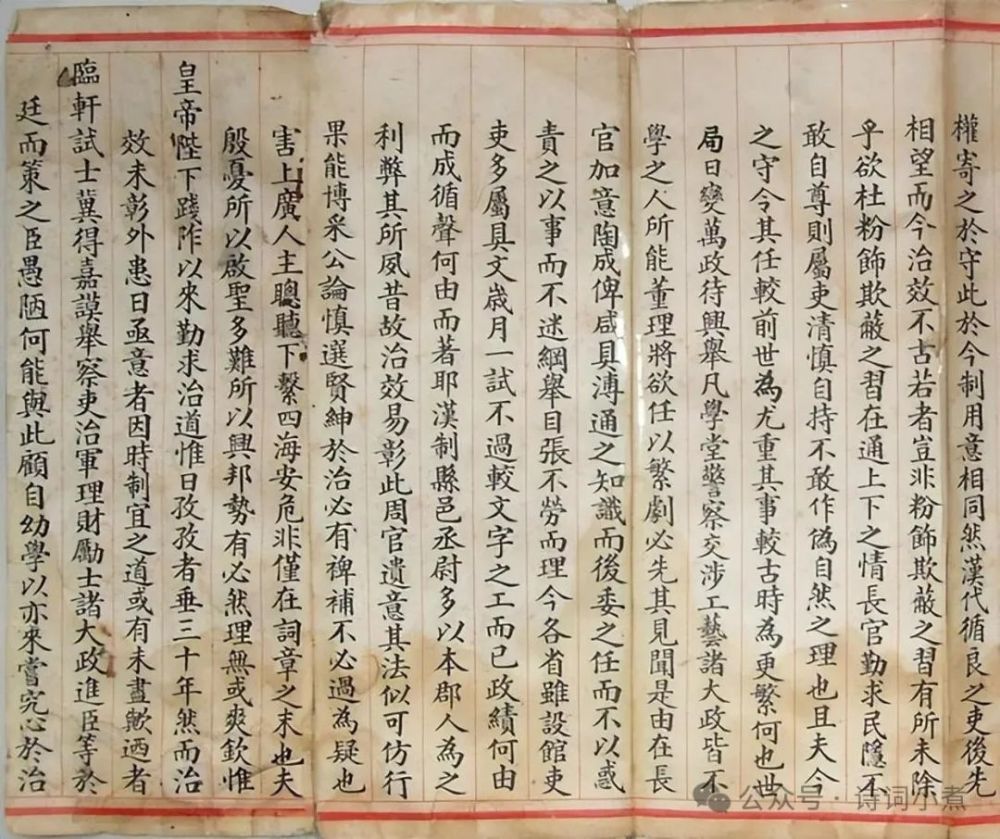 權寄之於守此於今制用意相同然漢代循良之吏後先
相望而今治效不古若者豈非粉飾欺蔽之習有所未除
乎欲杜粉飾欺蔽之習在通上下之情長官勤求民隱不
敢自尊則屬吏清慎自持不敢作偽自然之理也且夫今
之守令其任較前世為尤重其事較古時為更繁何也世
局日變萬政待興舉凡學堂警察交涉工藝諸大政皆不
學之人所能董理將欲任以繁劇必先其見聞是由在長
官加意陶成俾咸具溥通之知識而後委之任而不以惑
責之以事而不迷綱舉目張不勞而理今各省雖設館吏
吏多屬具文歲月一試不過較文字之工而已政績何由
而成循聲何由而著耶漢制縣邑丞尉多以本郡人為之
利弊其所夙昔故治效易彰此周官遺意其法似可仿行
果能博采公論慎選賢紳於治必有裨補不必過為疑也
害上廣人主聰聽下繫四海安危非僅在詞章之末也夫
殷憂所以啟聖多難所以興邦勢有必然理無或爽欽惟
皇帝陛下踐阼以來勤求治道惟日孜孜者垂三十年然而治
效未彰外患日亟意者因時制宜之道或有未盡歟迺者
臨軒試士冀得嘉謨舉察吏治軍理財勵士諸大政進臣等於
廷而策之臣愚陋何能與此顧自幼學以亦來嘗究心於治
公众号 · 诗词小煮